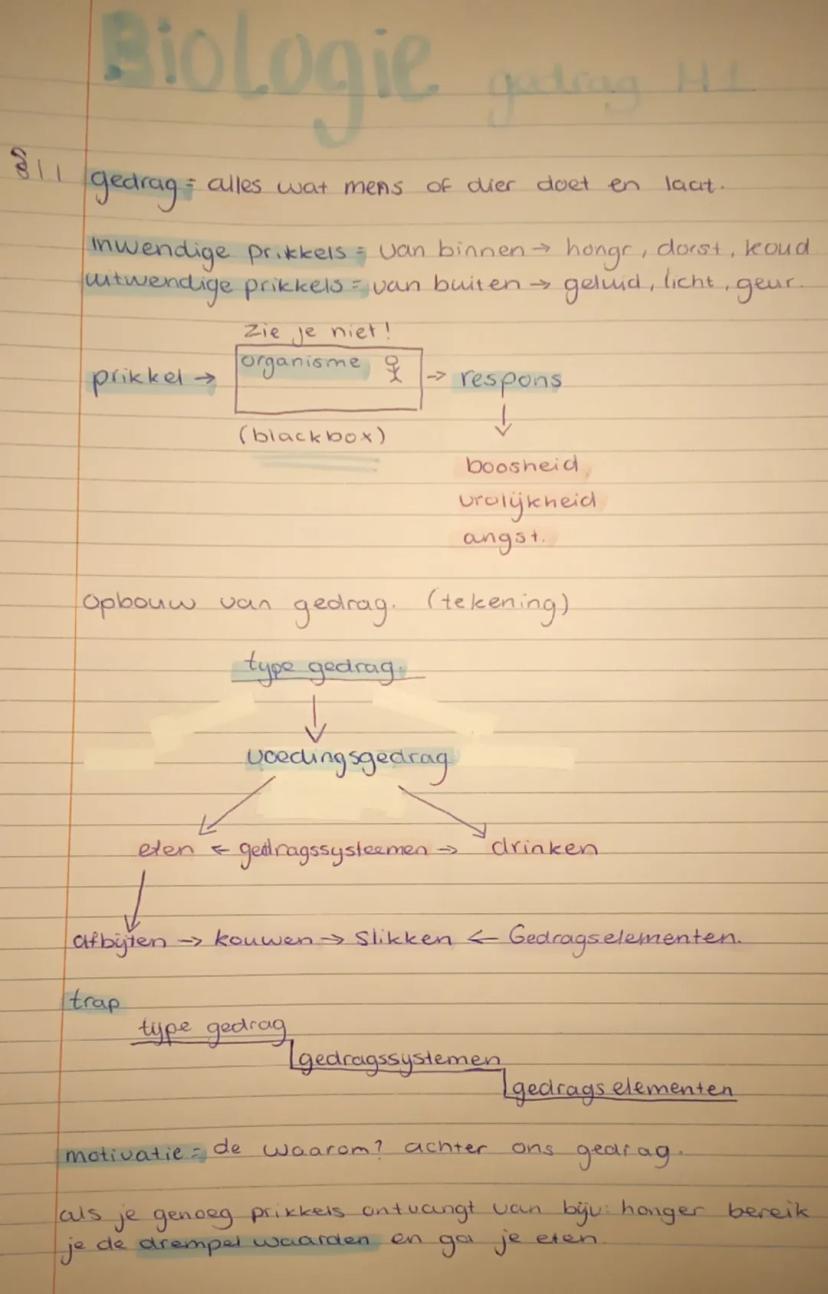 Biologie gedrag H1
§ 1.1 gedrag = alles wat mens of dier doet en laat.
inwendige prikkels = van binnen → hongr, dorst, koud
uitwendige prikkels = van buiten → geluid, licht, geur.
Zie je niet!
prikkel → organisme → respons
(blackbox)
boosheid
vrolijkheid
angst.
opbouw van gedrag. (tekening)
type gedrag.
voedingsgedrag
eten ← gedragssysteemen → drinken
afbijten → kouwen → slikken ← Gedragselementen.
trap
type gedrag
gedragssystemen
gedrags elementen
motivatie = de waarom? achter ons gedrag.
als je genoeg prikkels ontvangt van bijv: honger bereik
je de drempel waarden en ga je eten